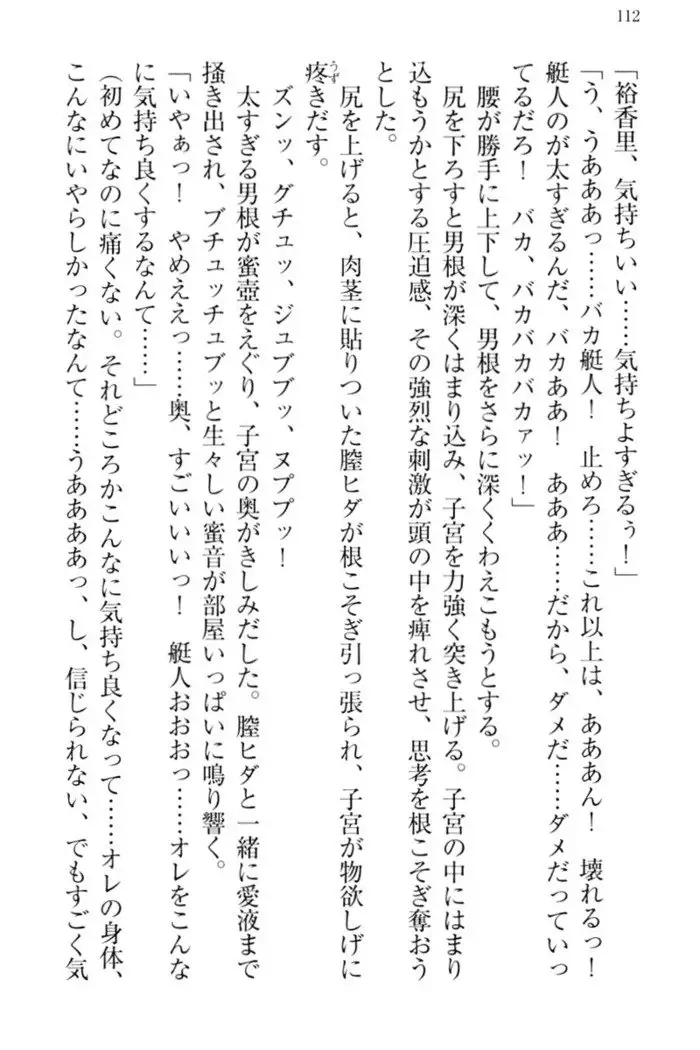 112
「裕香里、気持ちいい……気持ちよすぎるぅ！」
「う、うあああっ……バカ艇人！　止めろ……これ以上は、あああん！　壊れるっ！
艇人のが太すぎるんだ、バカああ！　あああ……だから、ダメだ……ダメだっていっ
てるだろ！　バカ、バカバカバカァッ！」
腰が勝手に上下して、男根をさらに深くくわえこもうとする。
尻を下ろすと男根が深くはまり込み、子宮を力強く突き上げる。子宮の中にはまり
込もうかとする圧迫感、その強烈な刺激が頭の中を痺れさせ、思考を根こそぎ奪おう
とした。
尻を上げると、肉茎に貼りついた膣ヒダが根こそぎ引っ張られ、子宮が物欲しげに
疼うずきだす。
ズンッ、グチュッ、ジュブブッ、ヌププッ！
太すぎる男根が蜜壺をえぐり、子宮の奥がきしみだした。膣ヒダと一緒に愛液まで
掻き出され、ブチュッチュブッと生々しい蜜音が部屋いっぱいに鳴り響く。
「いやぁっ！　やめええっ……奥、すごいいいっ！　艇人おおおっ……オレをこんな
に気持ち良くするなんて……」
（初めてなのに痛くない。それどころかこんなに気持ち良くなって……オレの身体、
こんなにいやらしかったなんて……うああああっ、し、信じられない、でもすごく気